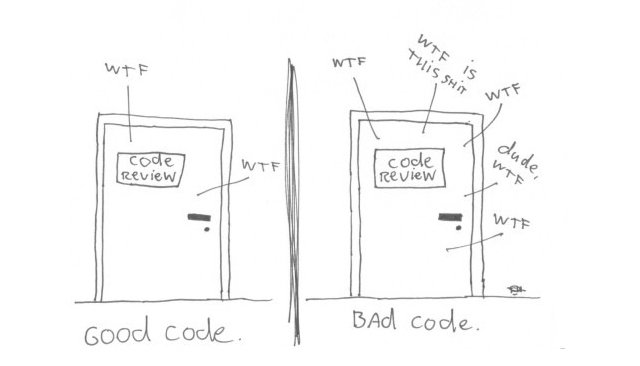 WTF
code
REVIEW
WTF
GOOD code.
WTF
WTF is
THIS SHIT
WTF
code
REVIEW
dude,
WTF
WTF
BAd code.